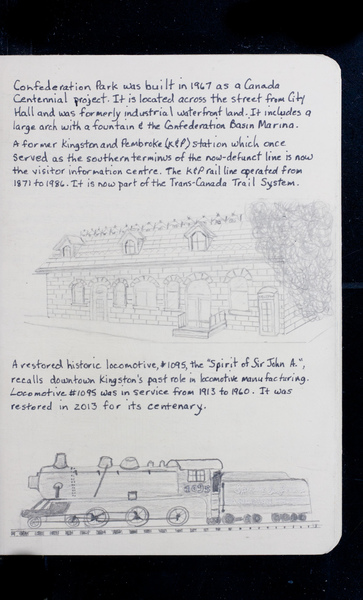 Confederation Park was built in 1967 as a Canada
Centennial project. It is located across the street from City
Hall and was formerly industrial waterfront land. It includes a
large arch with a fountain & the Confederation Basin Marina.
A former Kingston and Pembroke (K&P) station which once
served as the southern terminus of the now-defunct line is now
the visitor information centre. The K&P rail line operated from
1871 to 1986. It is now part of the Trans-Canada Trail System.
A restored historic locomotive, #1095, the "Spirit of Sir John A.",
recalls downtown Kingston's past role in locomotive manufacturing.
Locomotive #1095 was in service from 1913 to 1960. It was
restored in 2013 for its centenary.